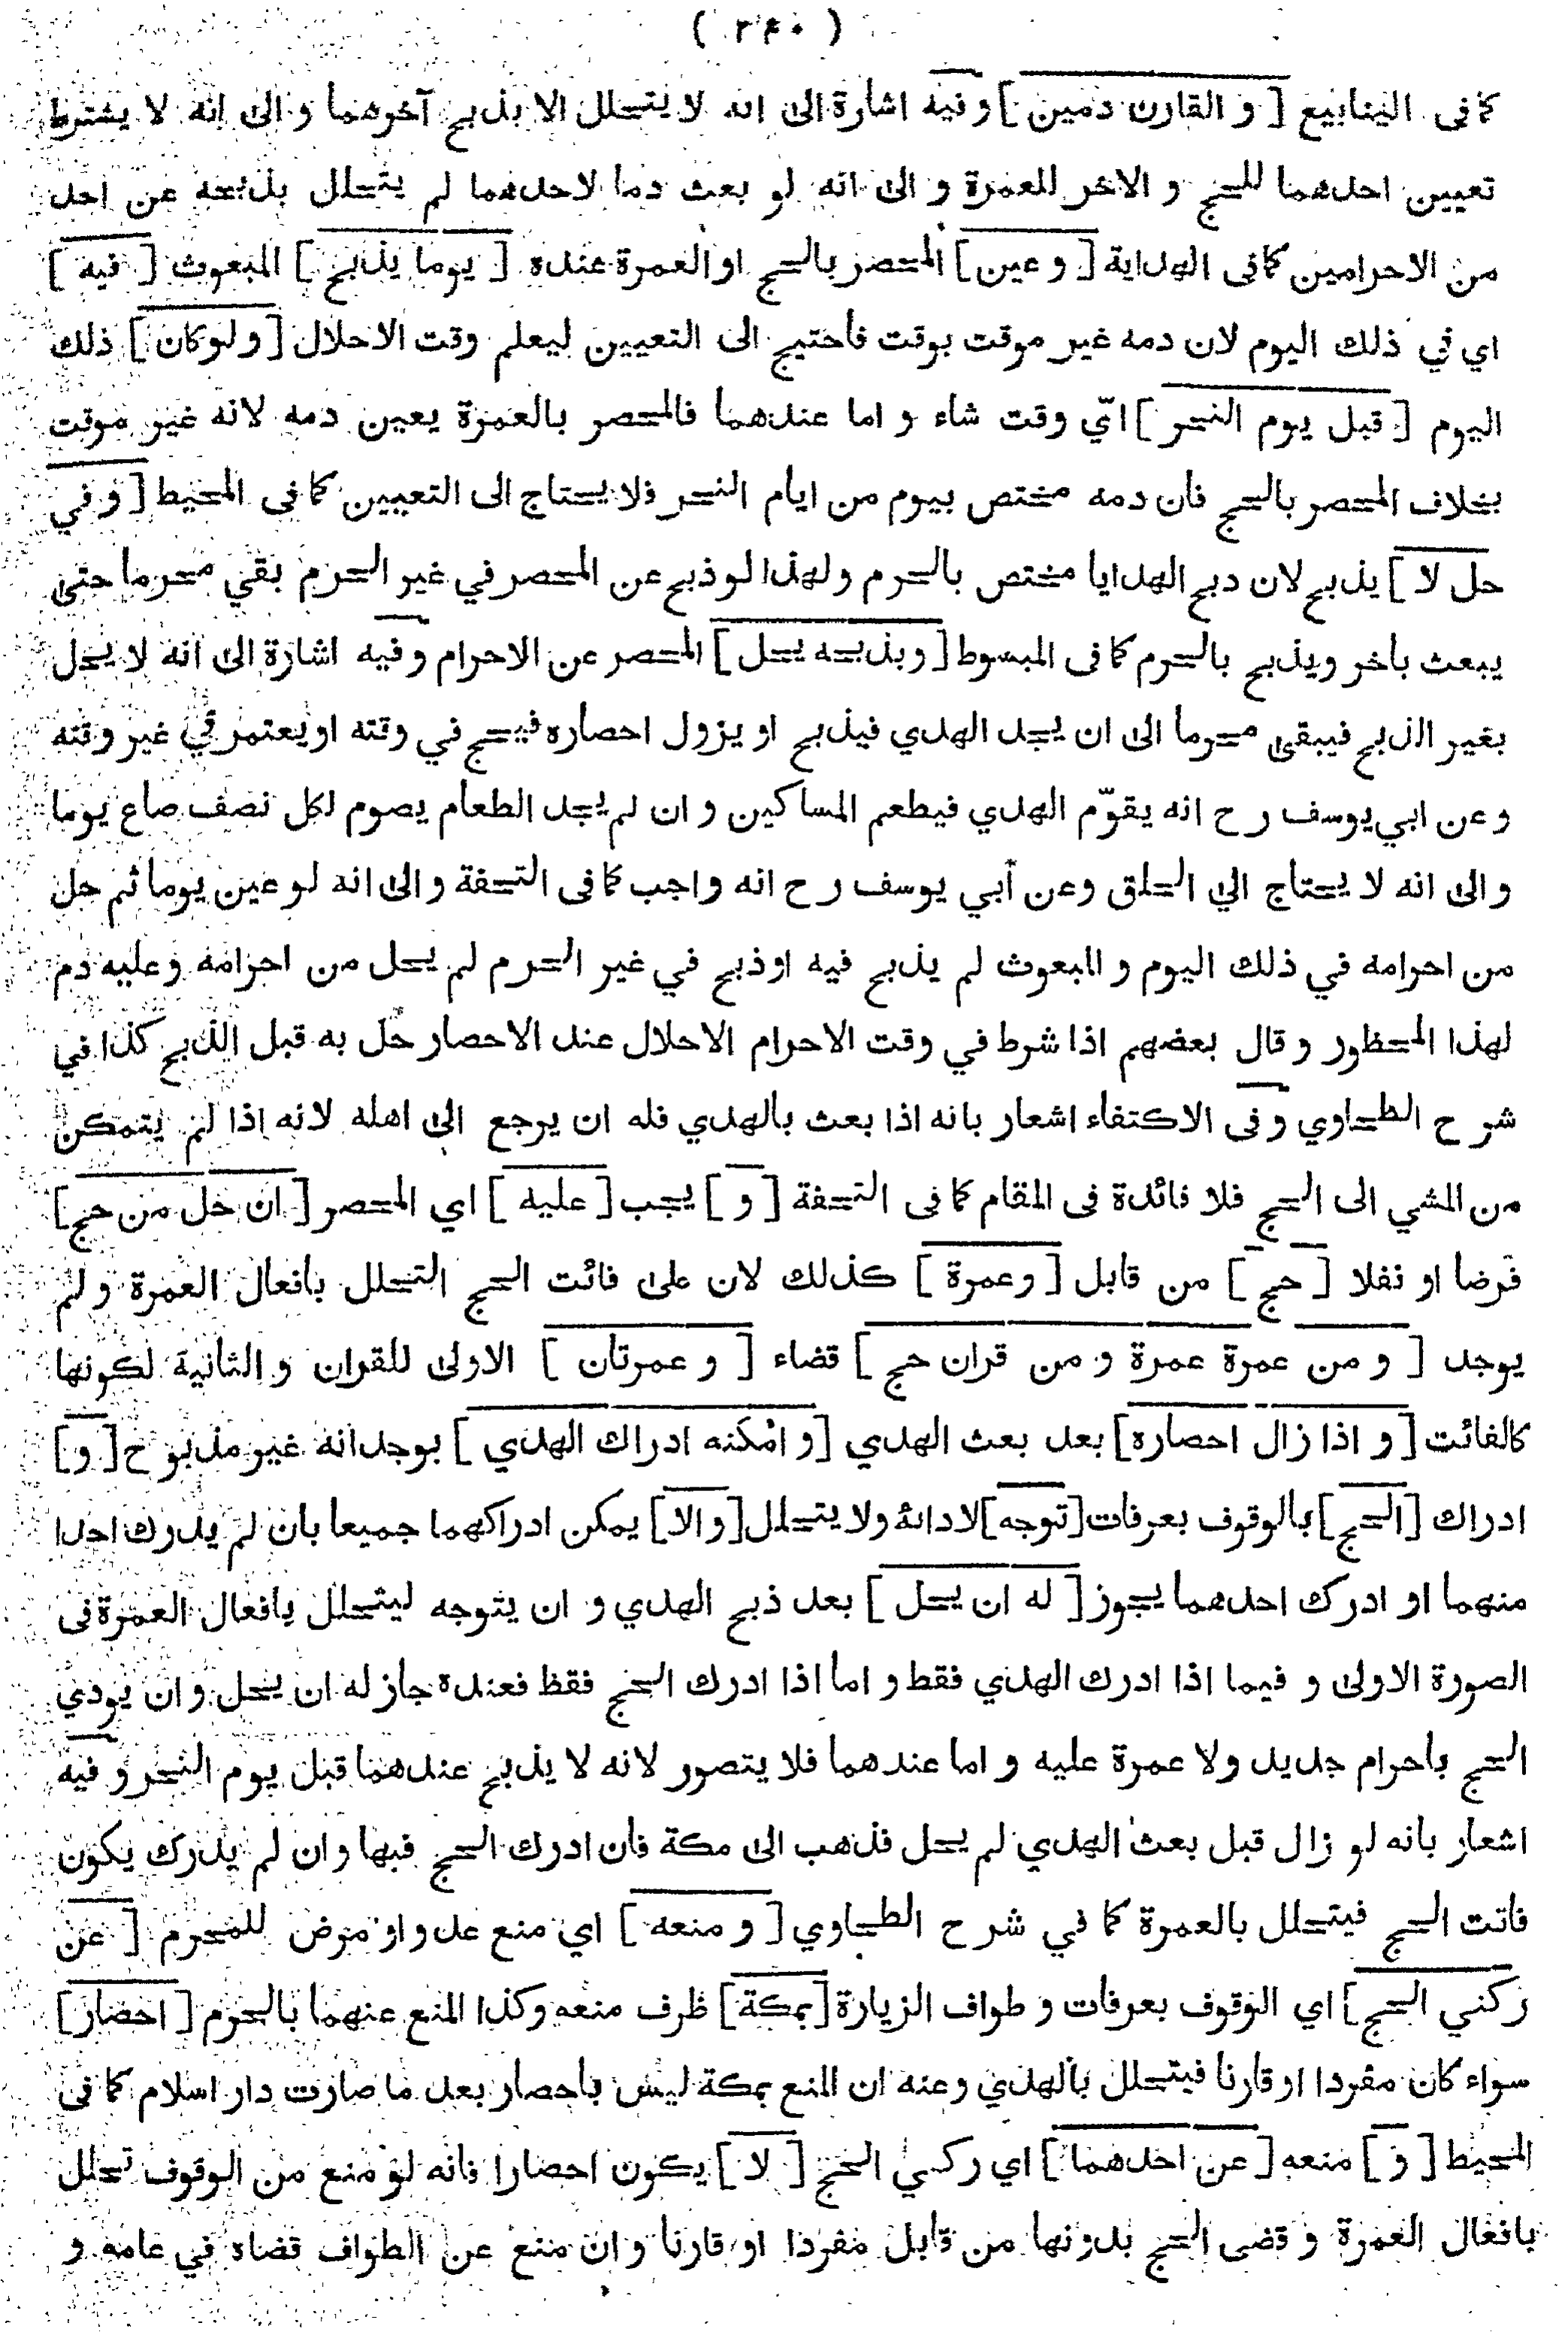 ( ٣٤٠ )
كما فى الينابيع [ و القارن دمين ] وفيه اشارة الى انه لا يتحلل الا بذبح آخرهما و الى انه لا يشترط
تعيين احدهما للحج و الاخر للعمرة و الى انه لو بعث دما لاحدهما لم يتحلل بذبحه عن احد
من الاحرامين كما فى الهداية [ و عين ] المحصر بالحج او العمرة عنده [ يوما يذبح ] المبعوث [ فيه ]
اي في ذلك اليوم لان دمه غير موقت بوقت فاحتيج الى التعيين ليعلم وقت الاحلال [ ولو كان ] ذلك
اليوم [ قبل يوم النحر ] ايّ وقت شاء و اما عندهما فالمحصر بالعمرة يعين دمه لانه غير موقت
بخلاف المحصر بالحج فان دمه مختص بيوم من ايام النحر فلا يحتاج الى التعيين كما فى المحيط [ و في
حل لا ] يذبح لان دبح الهدايا مختص بالحرم ولهذا لو ذبح عن المحصر في غير الحرم بقي محرما حتى
يبعث باخر ويذبح بالحرم كما فى المبسوط [ وبذبحه يحل ] المحصر عن الاحرام وفيه اشارة الى انه لا يحل
بغير الذبح فيبقى محرما الى ان يجد الهدي فيذبح او يزول احصاره فيحج في وقته او يعتمر في غير وقته
وعن ابي يوسف رح انه يقوّم الهدي فيطعم المساكين و ان لم يجد الطعام يصوم لكل نصف صاع يوما
والى انه لا يحتاج الي الحلق وعن أبي يوسف رح انه واجب كما فى التحفة و الى انه لو عين يوما ثم حل
من احرامه في ذلك اليوم و المبعوث لم يذبح فيه اوذبح في غير الحرم لم يحل من احرامه وعليه دم
لهذا المحظور و قال بعضهم اذا شرط في وقت الاحرام الاحلال عند الاحصار حل به قبل الذبح كذا في
شرح الطحاوي وفى الاكتفاء اشعار بانه اذا بعث بالهدي فله ان يرجع الى اهله لانه اذا لم يتمكن
من المشي الى الحج فلا فائدة فى المقام كما فى التحفة [ و ] يجب [ عليه ] اي المحصر [ ان حل من حج ]
فرضا او نفلا [ حج ] من قابل [ وعمرة ] كذلك لان على فائت الحج التحلل بافعال العمرة و لم
يوجد [ و من عمرة عمرة و من قران حج ] قضاء [ و عمرتان ] الاولى للقران و الثانية لكونها
كالفائت [ و اذا زال احصاره ] بعد بعث الهدي [ و امكنه ادراك الهدي ] بوجدانه غير مذبوح [ و ]
ادراك [ الحج ] بالوقوف بعرفات [ توجه ] لادائه ولا يتحلل [ والا ] يمكن ادراكهما جميعا بان لم يدرك احدا
منهما او ادرك احدهما يجوز [ له ان يحل ] بعد ذبح الهدي و ان يتوجه ليتحلل بافعال العمرة فى
الصورة الاولى و فيما اذا ادرك الهدي فقط و اما اذا ادرك الحج فقط فعنده جاز له ان يحل و ان يودي
الحج باحرام جديد ولا عمرة عليه و اما عندهما فلا يتصور لانه لا يذبح عندهما قبل يوم النحر و فيه
اشعار بانه لو زال قبل بعث الهدي لم يحل فذهب الى مكة فان ادرك الحج فبها و ان لم يدرك يكون
فاتت الحج فيتحلل بالعمرة كما في شرح الطحاوي [ و منعه ] اي منع عدو او مرض للمحرم [ عن
ركني الحج ] اي الوقوف بعرفات و طواف الزيارة [ بمكة ] ظرف منعه وكذا المنع عنهما بالحرم [ احصار ]
سواء كان مفردا او قارنا فيتحلل بالهدي وعنه ان المنع بمكة ليس باحصار بعد ما صارت دار اسلام كما فى
المحيط [ و ] منعه [ عن احدهما ] اي ركني الحج [ لا ] يكون احصارا فانه لو منع من الوقوف تحلل
بافعال العمرة و قضى الحج بدونها من قابل مفردا او قارنا و ان منع عن الطواف قضاه في عامه و